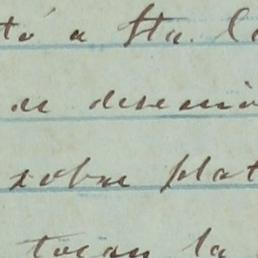 tó a Sta. C
de desemi
sobre plat
tocan la